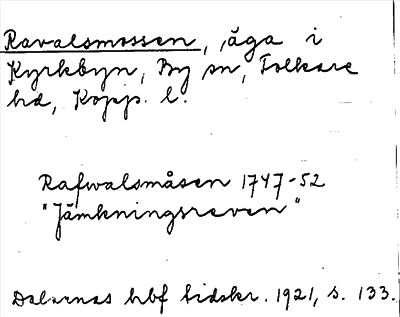 Ravalsmossen, äga i
Kyrkbyn, By sn, Folkare
hd, Kopp. l.
Rafwalsmåsen 1747-52
"Jämkningsreven"
Dalarnas hbf tidskr. 1921, s. 133.